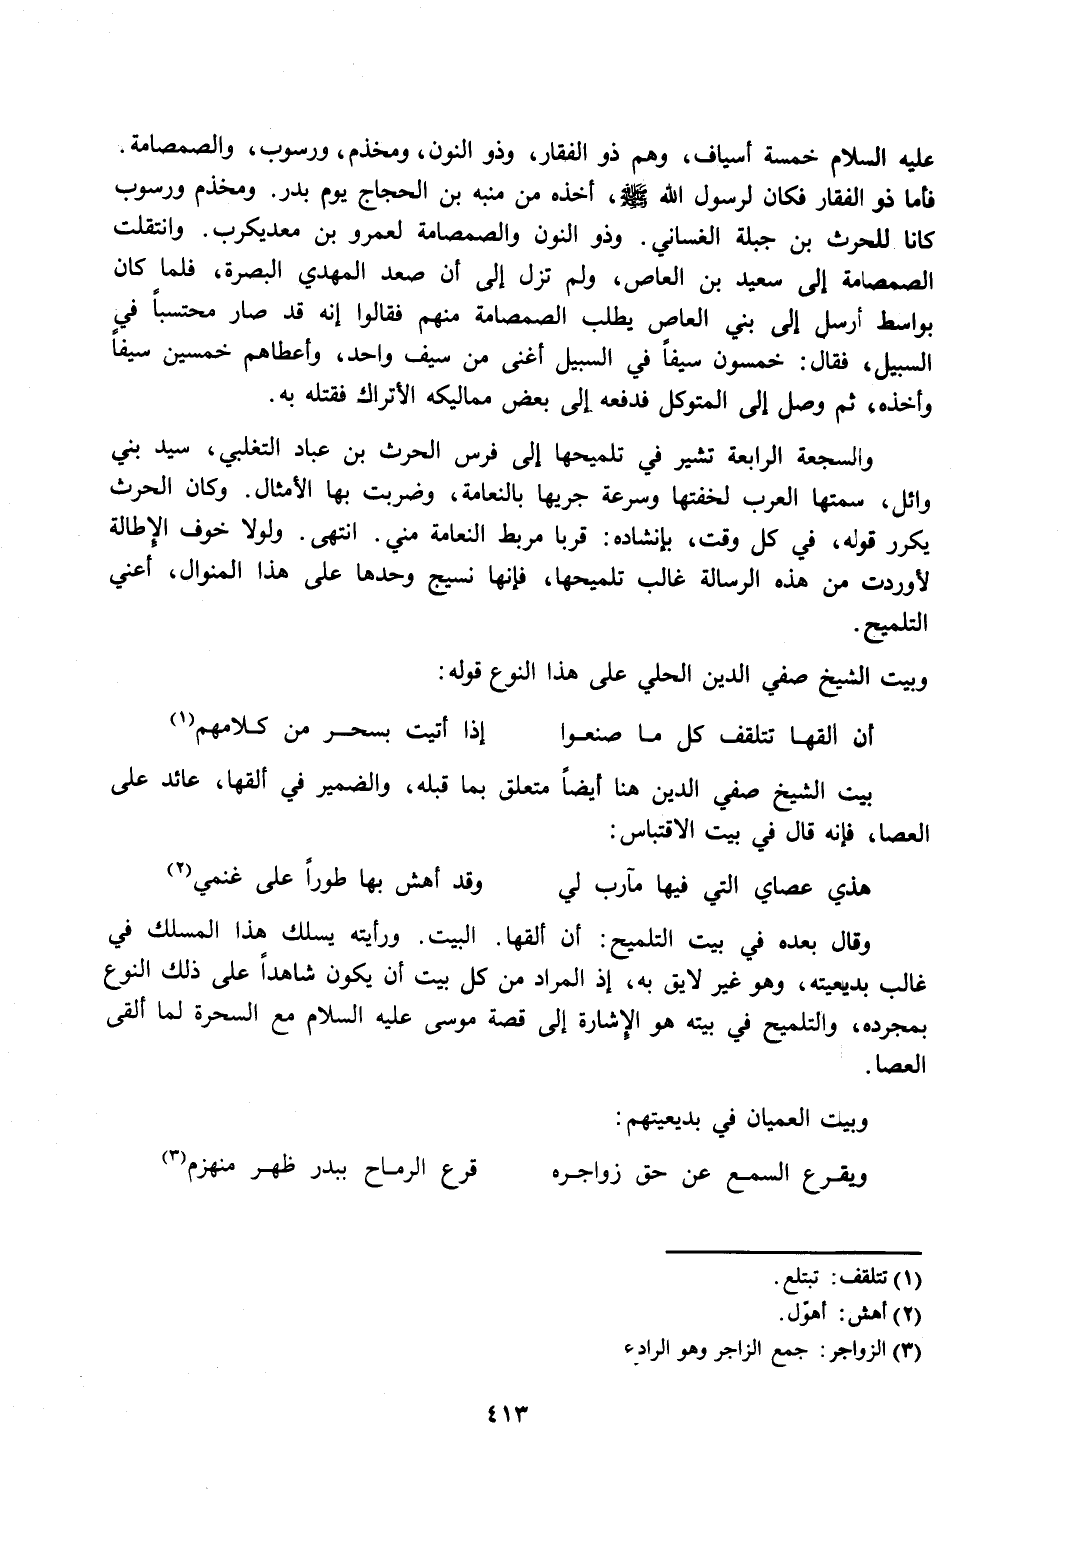 عليه السلام خمسة أسياف، وهم ذو الفقار، وذو النون، ومخذم، ورسوب، والصمصامة.
فأما ذو الفقار فكان لرسول الله ﷺ، أخذه من منبه بن الحجاج يوم بدر. ومخذم ورسوب
كانا للحرث بن جبلة الغساني. وذو النون والصمصامة لعمرو بن معديكرب. وانتقلت
الصمصامة إلى سعيد بن العاص، ولم تزل إلى أن صعد المهدي البصرة، فلما كان
بواسط أرسل إلى بني العاص يطلب الصمصامة منهم فقالوا إنه قد صار محتسباً في
السبيل، فقال: خمسون سيفاً في السبيل أغنى من سيف واحد، وأعطاهم خمسين سيفاً
وأخذه، ثم وصل إلى المتوكل فدفعه إلى بعض مماليكه الأتراك فقتله به.
والسجعة الرابعة تشير في تلميحها إلى فرس الحرث بن عباد التغلبي، سيد بني
وائل، سمتها العرب لخفتها وسرعة جريها بالنعامة، وضربت بها الأمثال. وكان الحرث
يكرر قوله، في كل وقت، بإنشاده: قربا مربط النعامة مني. انتهى. ولولا خوف الإطالة
لأوردت من هذه الرسالة غالب تلميحها، فإنها نسيج وحدها على هذا المنوال، أعني
التلميح.
وبيت الشيخ صفي الدين الحلي على هذا النوع قوله:
أن ألقهـا تتلقف كل مـا صنعـوا إذا أتيت بسحـر من كـلامهم(١)
بيت الشيخ صفي الدين هنا أيضاً متعلق بما قبله، والضمير في ألقها، عائد على
العصا، فإنه قال في بيت الاقتباس:
هذي عصاي التي فيها مآرب لي وقد أهش بها طوراً على غنمي(٢)
وقال بعده في بيت التلميح: أن ألقها. البيت. ورأيته يسلك هذا المسلك في
غالب بديعيته، وهو غير لايق به، إذ المراد من كل بيت أن يكون شاهداً على ذلك النوع
بمجرده، والتلميح في بيته هو الإشارة إلى قصة موسى عليه السلام مع السحرة لما ألقى
العصا.
وبيت العميان في بديعيتهم:
ويقـرع السمـع عن حق زواجـره قرع الرمـاح ببدر ظهـر منهزم(٣)
(١) تتلقف: تبتلع.
(٢) أهش: أهوّل.
(٣) الزواجر: جمع الزاجر وهو الرادع
٤١٣